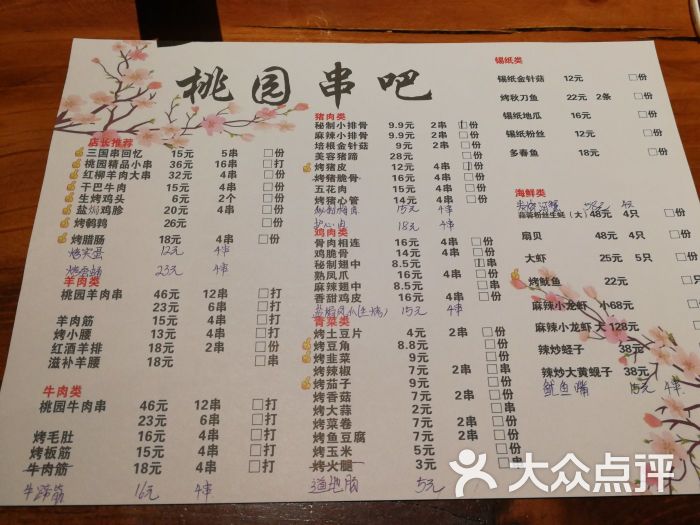 桃园串吧
店长推荐
三国串回忆 15元 5串 □份
桃园精品小串 36元 16串 □打
红柳羊肉大串 32元 4串 □打
干巴牛肉 15元 4串 □份
生烤鸡头 6元 2个 □份
盐焗鸡胗 20元 4串 □份
烤鹌鹑 26元 □份
烤腊肠 18元 4串 □份
12元 4串
23元 4串
羊肉类
桃园羊肉串 46元 12串 □打
23元 6串 □打
羊肉筋 16元 4串 □打
烤小腰 13元 4串 □打
红酒羊排 18元 2串 □份
滋补羊腰 18元 □串
牛肉类
桃园牛肉串 46元 12串 □打
23元 6串 □打
烤毛肚 16元 4串 □打
烤板筋 15元 4串 □打
牛肉筋 18元 4串 □打
牛蹄筋 16元 4串
猪肉类
秘制小排骨 9.9元 2串 □份
麻辣小排骨 9.9元 2串 □份
培根金针菇 9元 2串 □份
美容猪蹄 28元 □份
烤猪皮 12元 4串 □份
烤猪脆骨 16元 4串 □份
五花肉 15元 4串 □份
烤猪心管 14元 4串 □份
15元 4串
护心肉 18元 4串
鸡肉类
骨肉相连 16元 4串 □份
鸡脆骨 14元 4串 □份
秘制翅中 8.5元 □串
熟凤爪 16元 4串 □份
麻辣翅中 8.5元 □串
香甜鸡皮 16元 4串 □份
盐焗凤爪(生烤) 15元 4串
青菜类
烤土豆片 4元 2串 □份
烤豆角 8.8元 □份
烤韭菜 9元 □份
烤辣椒 7元 2串 □份
烤茄子 9元 □份
烤香菇 7元 2串 □份
烤大蒜 2元 □串
烤菜卷 7元 2串 □份
烤鱼豆腐 7元 2串 □份
烤玉米 5元 □串
烤火腿 3元 □串
道地肠 5元
锡纸类
锡纸金针菇 12元 □份
烤秋刀鱼 22元 2条 □份
锡纸地瓜 16元 □份
锡纸粉丝 12元 □份
多春鱼 18元 □份
海鲜类
蒜蓉粉丝生蚝(大) 48元 4只 □份
扇贝 48元 5只 □份
大虾 25元 5只 □份
烤鱿鱼 22元 □份
麻辣小龙虾 小68元 □份
麻辣小龙虾 大128元 □份
辣炒蛏子 38元 □份
辣炒大黄蚬子 38元 □份
鱿鱼嘴 15元 4串
大众点评